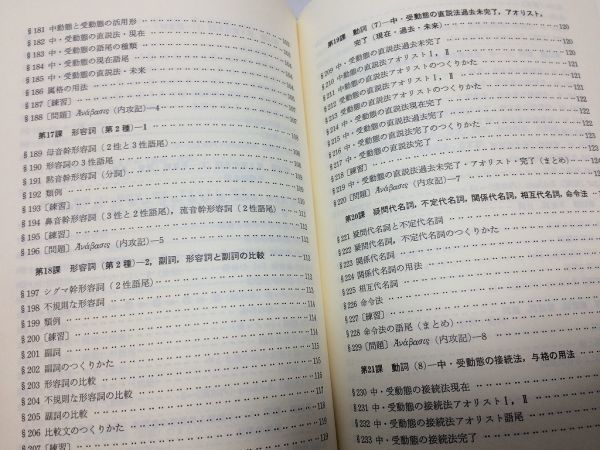 §181 中動態と受動態の活用形
§182 中・受動態の直説法・現在
§183 中・受動態の語尾の種類
§184 中・受動態の現在語尾
§185 中・受動態の直説法・未来
§186 属格の用法
§187 [練習]
§188 [問題] Ἀνάβασις (内攻記)—4 107
第17課 形容詞 (第2種)—1 108
§189 母音幹形容詞 (2性と3性語尾) 108
§190 形容詞の3性語尾
§191 黙音幹形容詞 (分詞)
§192 類例
§193 [練習]
§194 鼻音幹形容詞 (3性と2性語尾), 流音幹形容詞 (2性語尾)
§195 [練習]
§196 [問題] Ἀνάβασις (内攻記)—5
第18課 形容詞 (第2種)—2, 副詞, 形容詞と副詞の比較 112
§197 シグマ幹形容詞 (2性語尾) 112
§198 不規則な形容詞
§199 類例
§200 [練習]
§201 副詞
§202 副詞のつくりかた
§203 形容詞の比較
§204 不規則な形容詞の比較 117
§205 副詞の比較 118
§206 比較文のつくりかた 118
§207 [練習] 119
第19課 動詞 (7)—中・受動態の直説法過去未完了, アオリスト,
完了 (現在・過去・未来) 120
§209 中・受動態の直説法過去未完了 120
§210 中動態の直説法アオリスト I, II
§211 中動態の直説法アオリストのつくりかた
§212 受動態の直説法アオリスト I, II
§213 受動態の直説法アオリストのつくりかた
§214 中・受動態の直説法現在完了
§215 中・受動態の直説法過去完了
§216 中・受動態の直説法未来完了
§217 中・受動態完了のつくりかた
§218 [練習]
§219 中・受動態の直説法過去未完了・アオリスト・完了 (まとめ)
§220 [問題] Ἀνάβασις (内攻記)—7
第20課 疑問代名詞, 不定代名詞, 関係代名詞, 相互代名詞, 命令法
§221 疑問代名詞と不定代名詞
§222 疑問代名詞, 不定代名詞のつくりかた
§223 関係代名詞
§224 関係代名詞の用法
§225 相互代名詞
§226 命令法
§227 [練習]
§228 命令法の語尾 (まとめ)
§229 [問題] Ἀνάβασις (内攻記)—8
第21課 動詞 (8)—中・受動態の接続法, 与格の用法
§230 中・受動態の接続法現在
§231 中・受動態の接続法アオリスト I, II
§232 中・受動態の接続法アオリスト語尾
§233 中・受動態の接続法完了